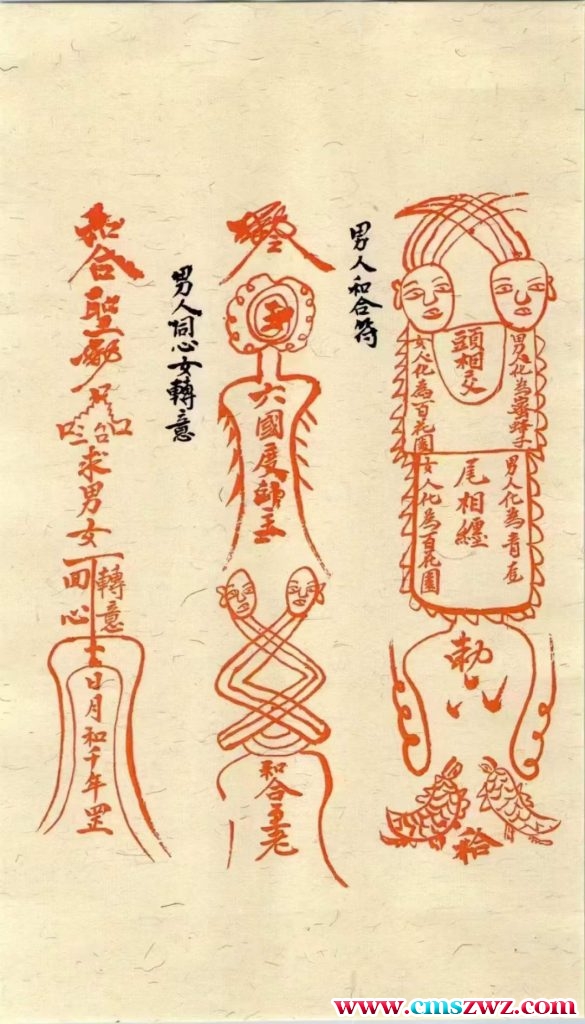 男人和合符
頭相交
男人化為蜜蜂子
女人化為百花園
尾相纏
男人化為青
女人化為百花園
勅
男人同心女轉意
六國度師主
和合
老
和合
聖
求男女
回心
轉意
日月和千年罡
www.cmszwz.com